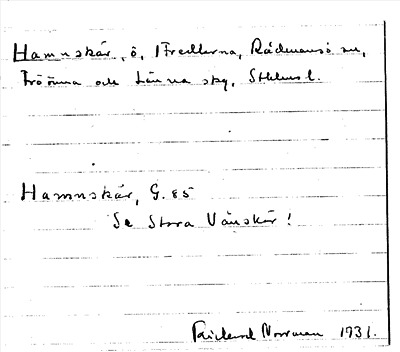 Hamnskär, ö, i Fredlarna, Rådmansö sn,
Frötuna och Länna skg, Sthlms l.
Hamnskär, G. 85
Se Stora Vänskär!
Rickard Norrman 1931.